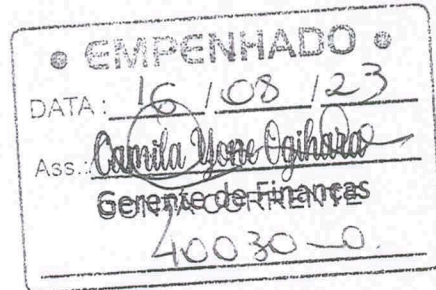 • EMPENHADO •
DATA: 16 / 08 / 23
Ass.: Camila Yone Ogihara
Gerente de Finanças
40030-0.